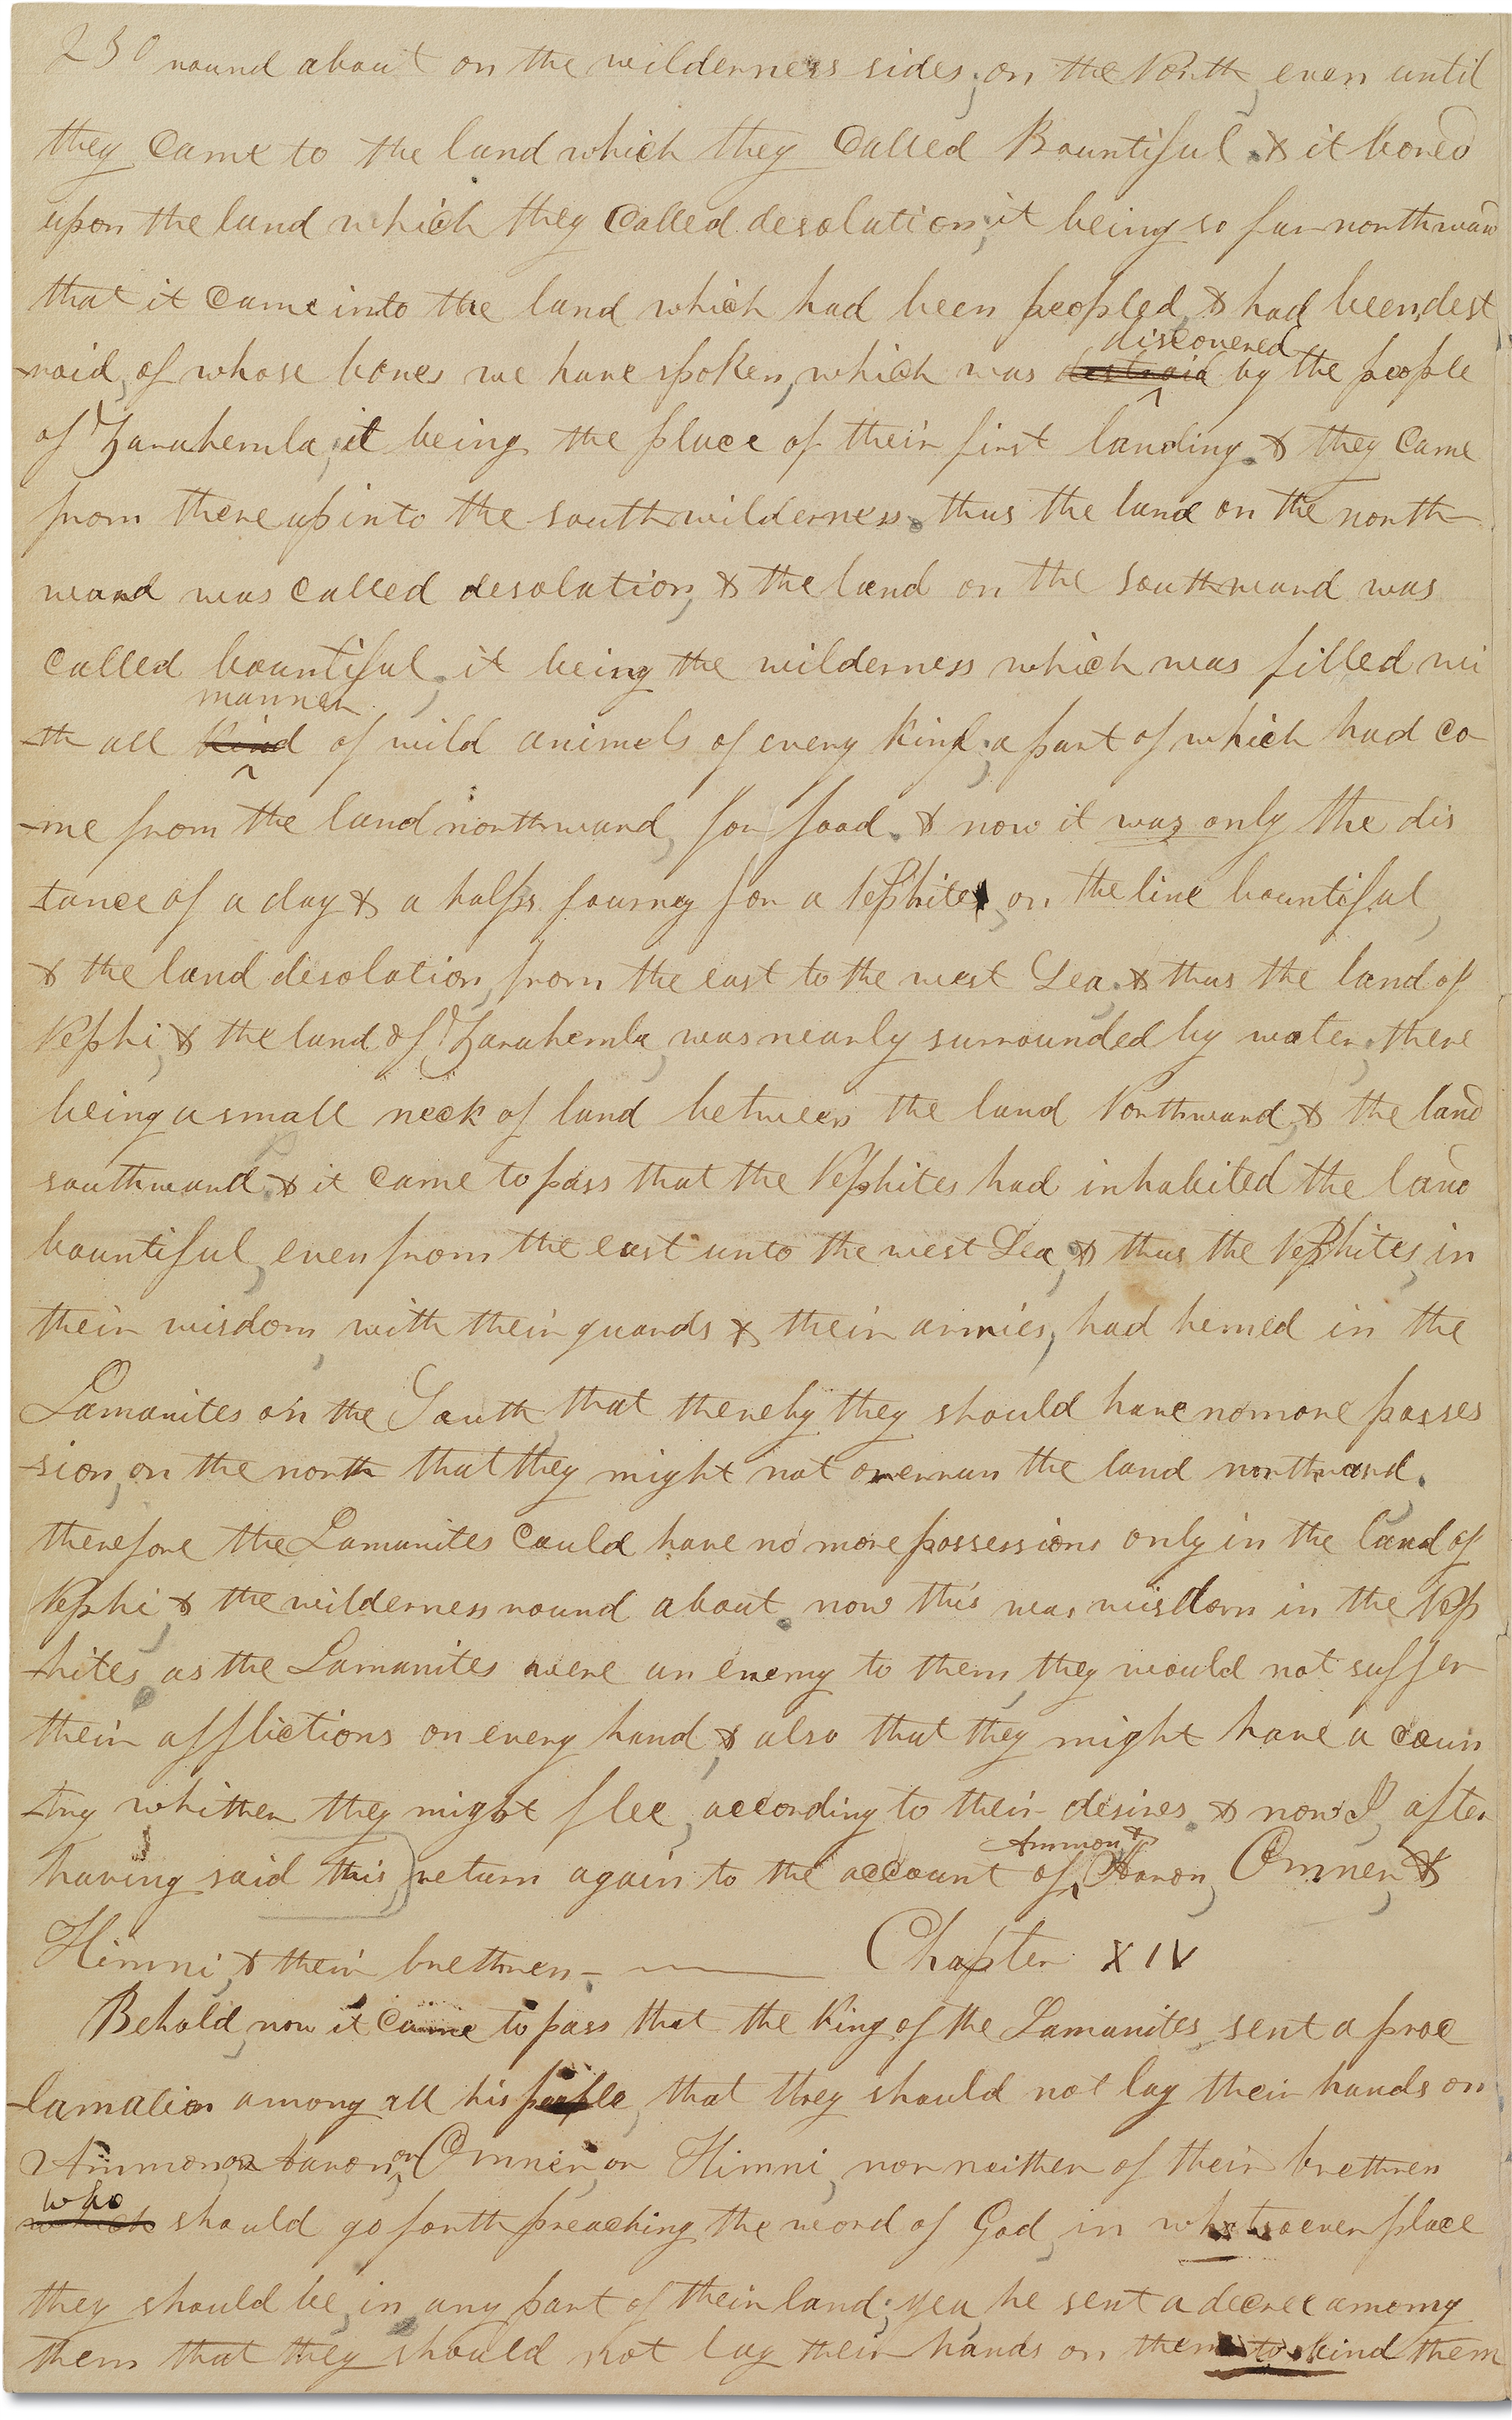 230 round about on the wilderness sides; on the North, even until
they came to the land which they called Bountiful. & it bored
upon the land which they called desolation; it being so far northward
that it came into the land which had been peopled, & had been, dest
-roid, of whose bones we have spoken, which was destroid discovered by the people
of Zarahemla; it being the place of their first landing. & they came
from there up into the south wilderness. thus the land on the north-
ward was called desolation, & the land on the southward was
called bountiful; it being the wilderness which was filled wi
-th all kind manner of wild animels of every kind; a part of which had co-
-me from the land northward, for food. & now it was only the dis
-tance of a day & a halfs journey for a Nephite, on the line bountiful,
& the land desolation, from the east to the west Sea. & thus the land of
Nephi, & the land of Zarahemla, was nearly surrounded by water; there
being a small neck of land between the land Northward, & the land
southward. & it came to pass that the Nephites had inhabited the land
bountiful, even from the east unto the west Sea, & thus the Nephites, in
their wisdom, with their guards & their armies, had hemed in the
Lamanites on the South, that thereby they should have no more posses
-sion, on the north that they might not overrun the land northward.
therefore the Lamanites could have no more possessions only in the land of
Nephi, & the wilderness round about. now this was wisdom in the Nep
-hites, as the Lamanites were an enemy to them, they would not suffer
their afflictions on every hand, & also that they might have a coun
-try whither they might flee, according to their desires. & now I, after
having said this, return again to the account of Ammon & Aaron, Omner, &
Himni, & their brethren. — Chapter XIV
Behold, now it came to pass that the King of the Lamanites, sent a proc
-lamation among all his people, that they should not lay their hands on
Ammon, or Aaron, or Omner, or Himni, nor neither of their brethren
which who should go forth preaching the word of God, in whatsoever place
they should be, in any part of their land; yea, he sent a decree among
them that they should not lay their hands on them to bind them